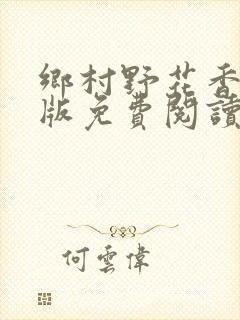 鄉村野花香
版免費閱讀
何雲偉